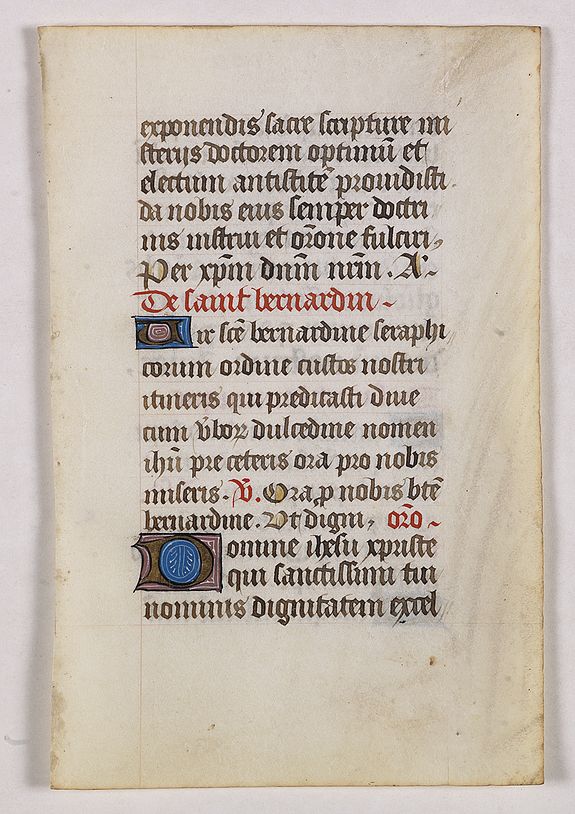 exponendis sacre scripture mi
sterijs doctorem optimū et
electum antistitē prouidisti.
da nobis eius semper doctri
nis instrui et orōne fulciri,
Per xp̄m dnm̄ nrm̄. A~
De saint bernardin ~
Vir scē bernardine seraphi
corum ordine custos nostri
itineris qui predicasti diue
cum v̄boꝝ dulcedine nomen
ihū pre ceteris ora pro nobis
miseris. V̄. Ora p̱ nobis btē
bernardine. Vt digni, orō ~
Domine ihesu xpriste
qui sanctissimi tui
nominis dignitatem excel